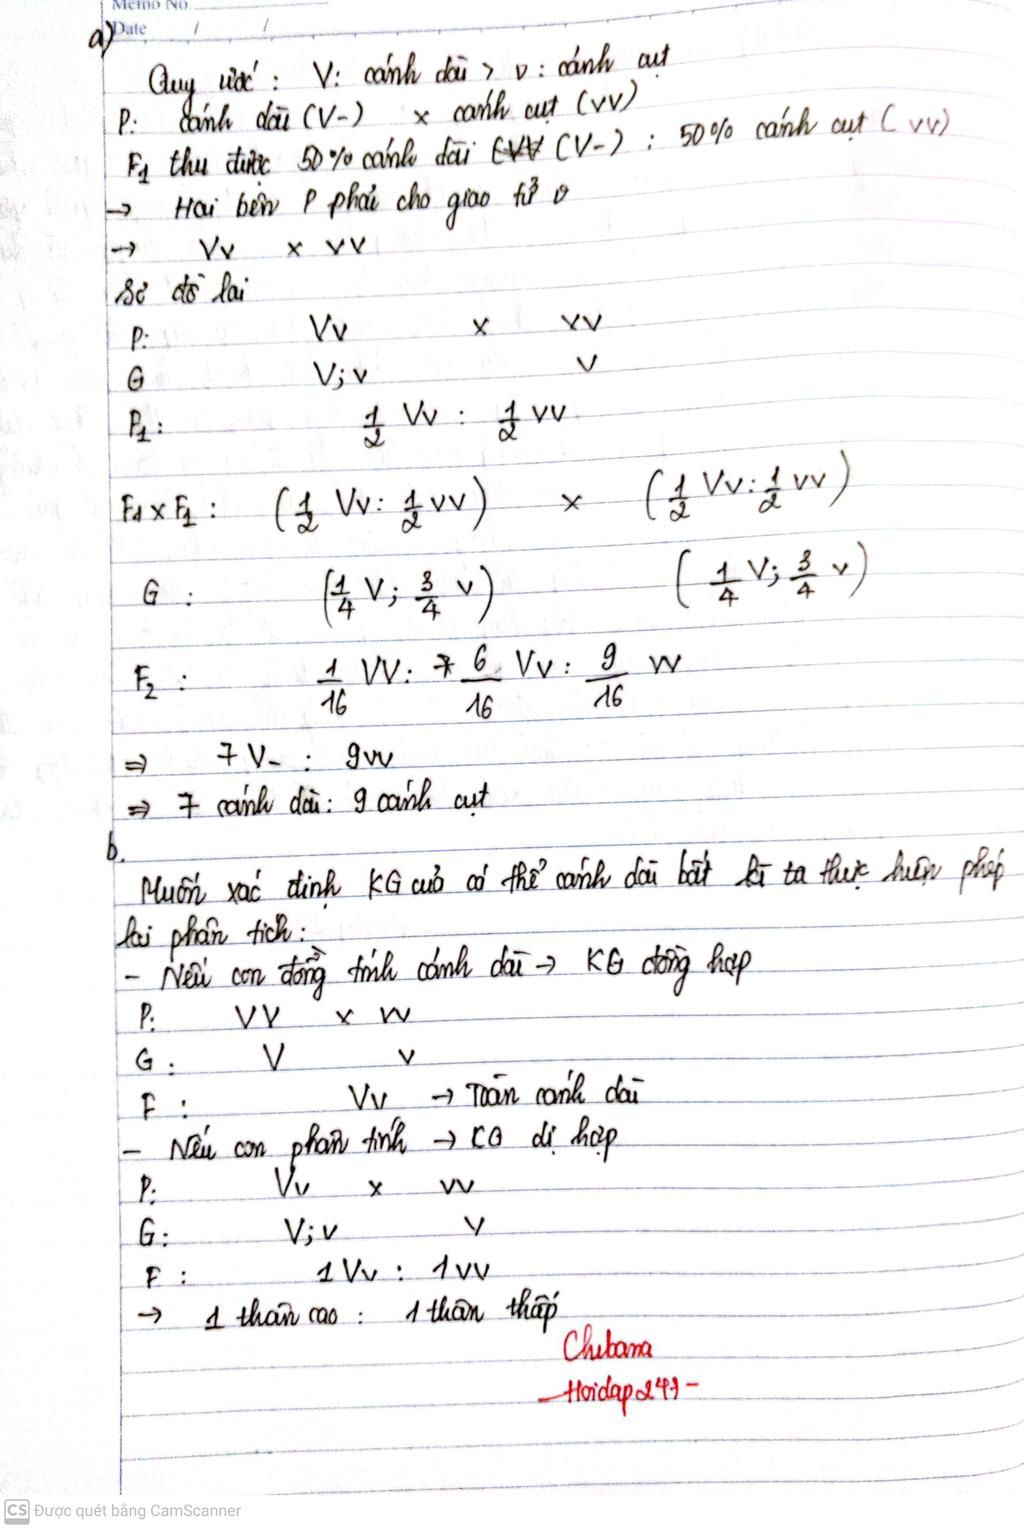 Memo No.
Date / /
a)
Quy ước : V: cánh dài > v : cánh cụt
P: cánh dài (V-) x cánh cụt (vv)
F1 thu được 50% cánh dài (V-) : 50% cánh cụt (vv)
→ Hai bên P phải cho giao tử v
→ Vv x vv
Sơ đồ lai
P: Vv x vv
G V; v v
P1: 1/2 Vv : 1/2 vv
F1 x F1 : (1/2 Vv : 1/2 vv) x (1/2 Vv : 1/2 vv)
G : (1/4 V; 3/4 v) (1/4 V; 3/4 v)
F2 : 1/16 VV : 6/16 Vv : 9/16 vv
⇒ 7 V- : 9vv
⇒ 7 cánh dài : 9 cánh cụt
b.
Muốn xác định KG của cá thể cánh dài bất kì ta thực hiện phép
lai phân tích :
- Nếu con đồng tính cánh dài → KG đồng hợp
P: VV x vv
G : V v
F : Vv → Toàn cánh dài
- Nếu con phân tính → KG dị hợp
P: Vv x vv
G : V; v v
F : 1 Vv : 1 vv
→ 1 thân cao : 1 thân thấp
Chibana
- Hoidap247 -
CS Được quét bằng CamScanner